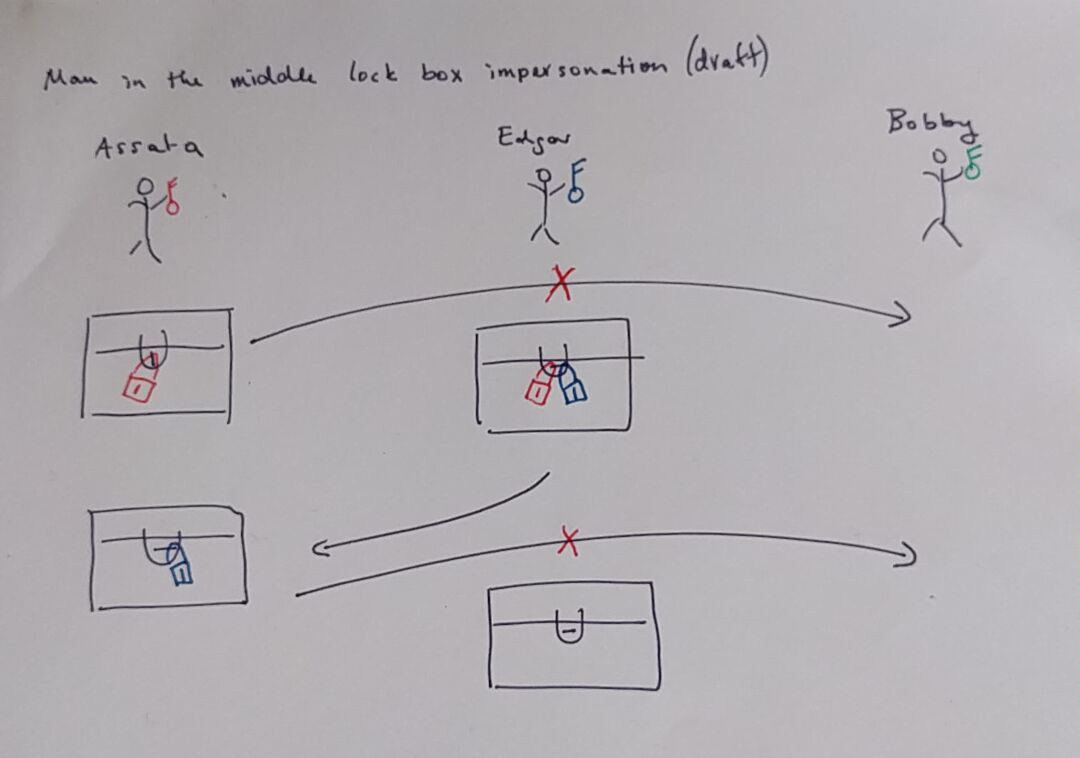 Man in the middle lock box impersonation (draft)
Assata
Edgar
Bobby